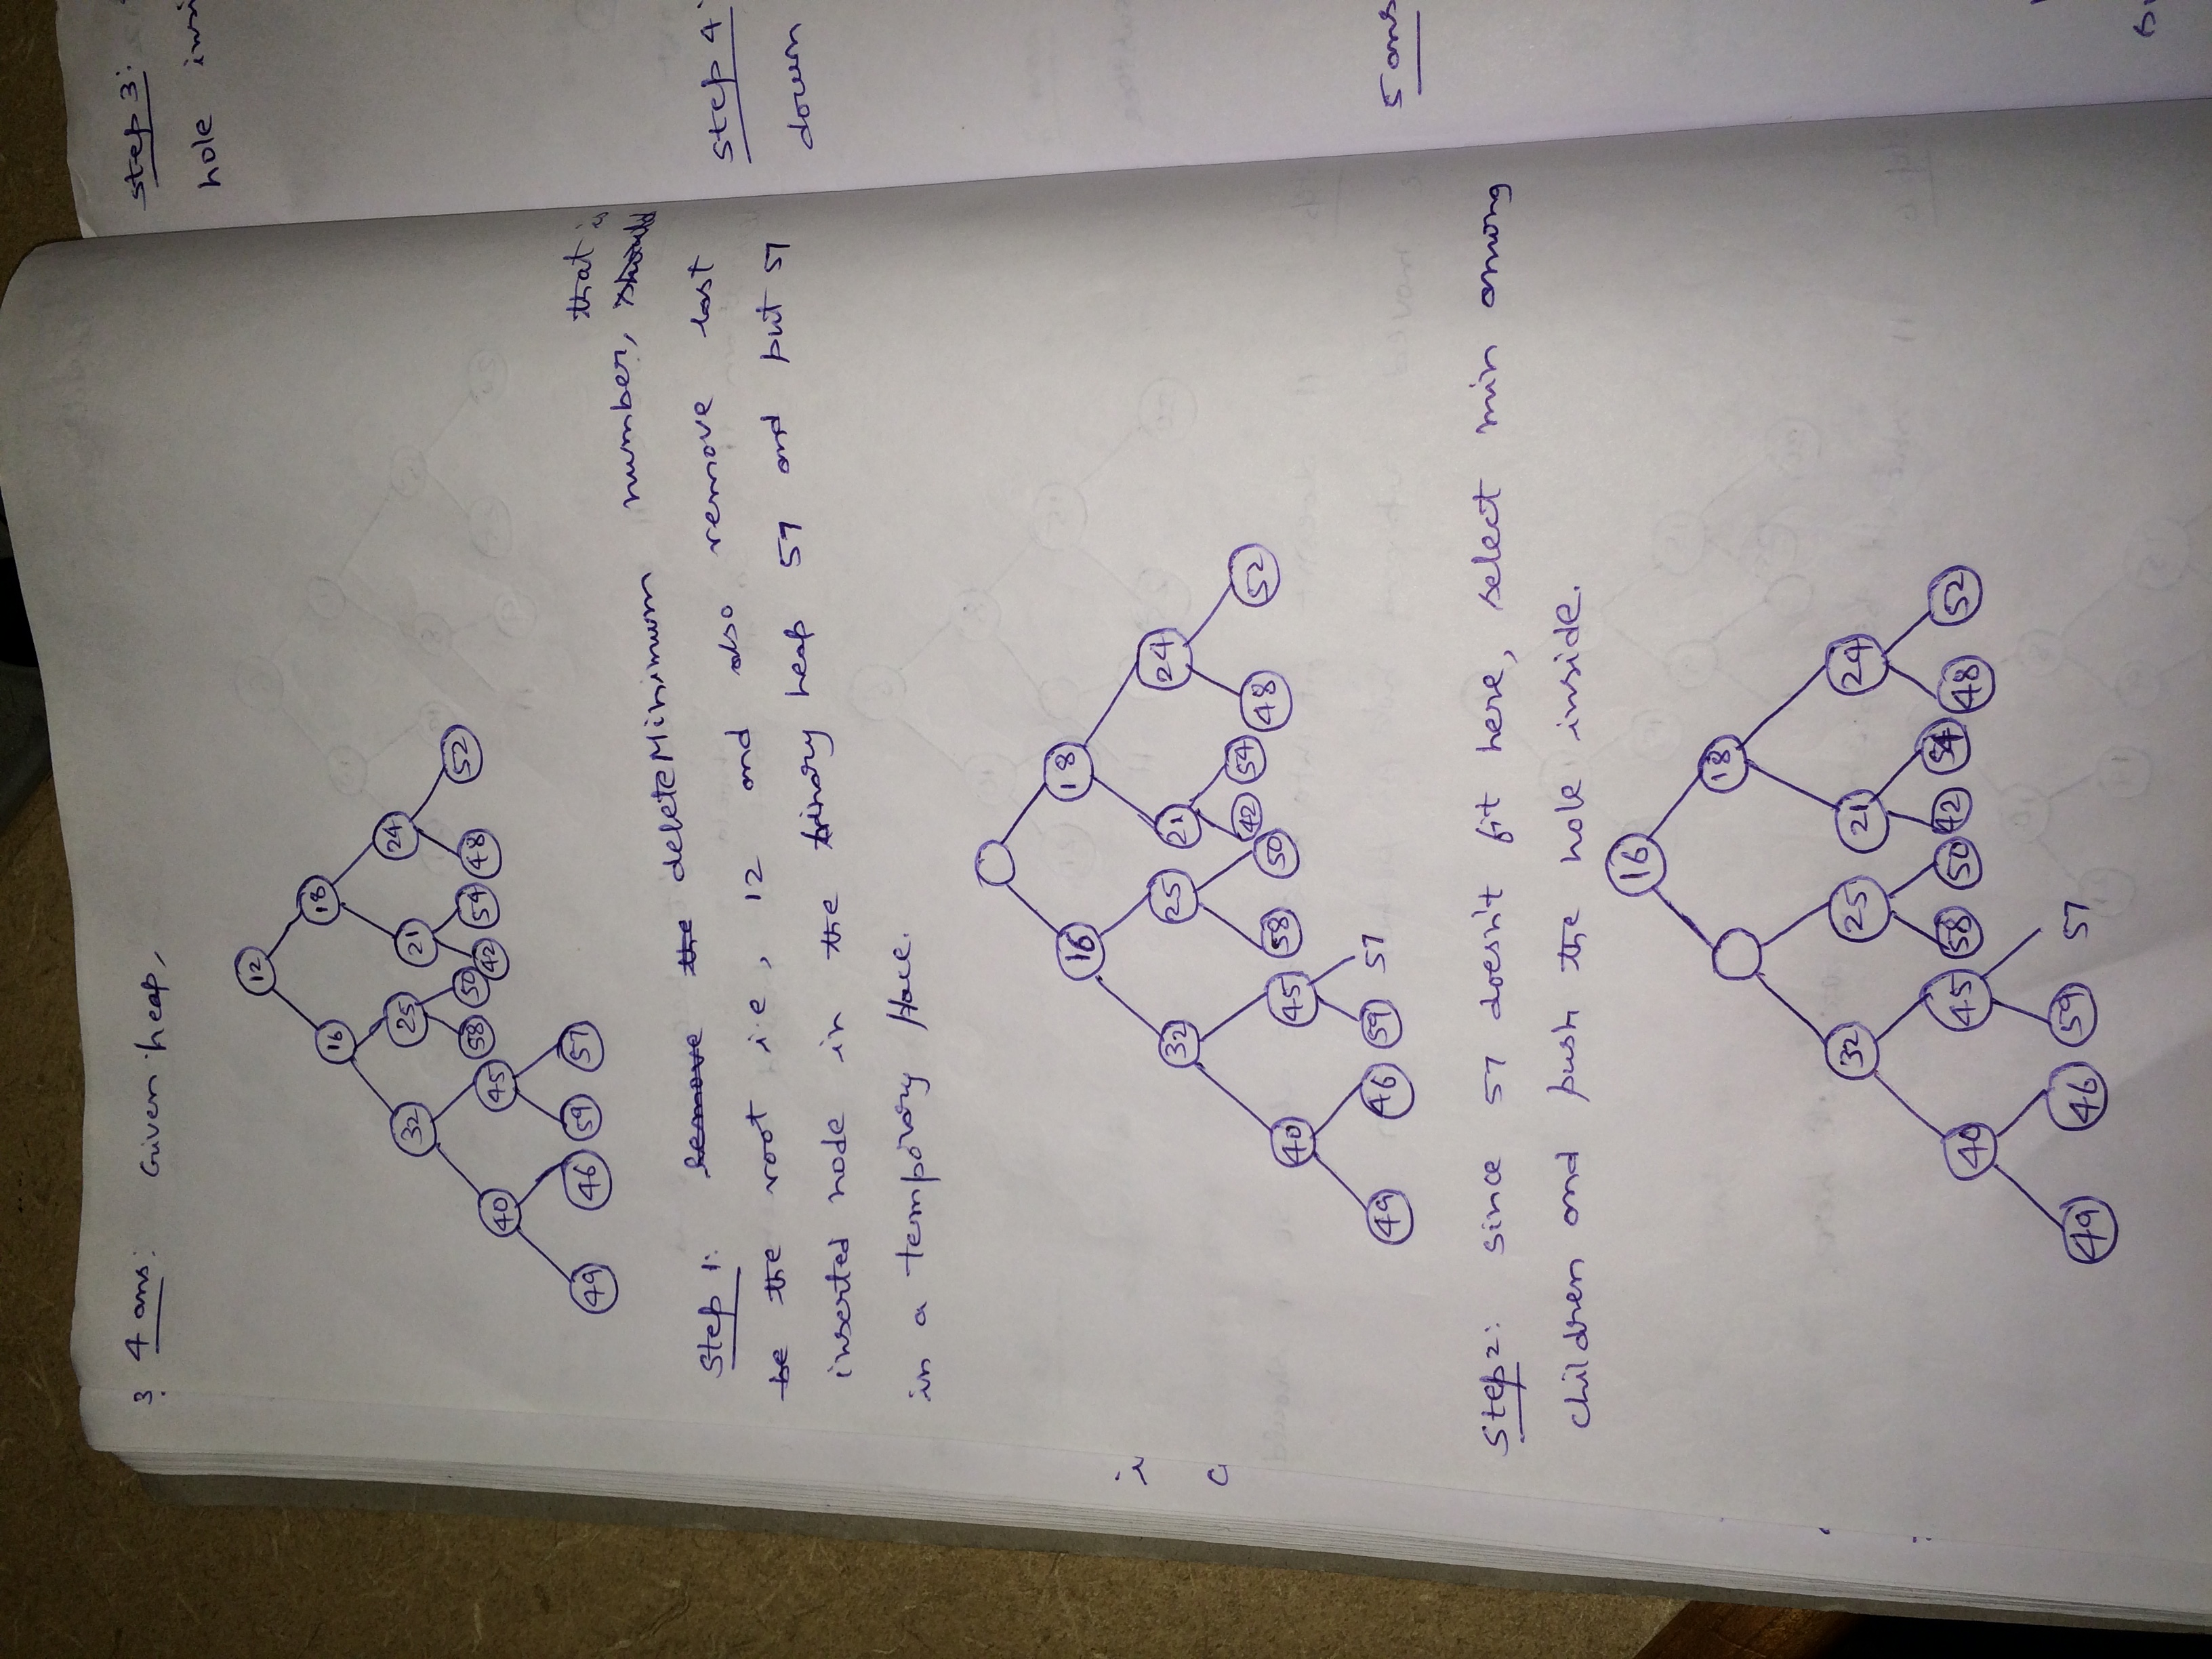 3. 4 ans: Given heap,
12
16 18
32 25 21 24
40 45 58 50 42 54 48 52
49 46 59 57
that is
Step 1: remove the deleteMinimum number, should
be the root i.e, 12 and also remove last
inserted node in the binary heap 57 and put 57
in a temporary place.
16 18
32 25 21 24
40 45 58 50 42 54 48 52
49 46 59 57
Step 2: since 57 doesn't fit here, select min among
children and push the hole inside.
16
18
32 25 21 24
40 45 58 50 42 54 48 52
49 46 59 57
i
c
step 3:
hole
step 4:
down
5 ans